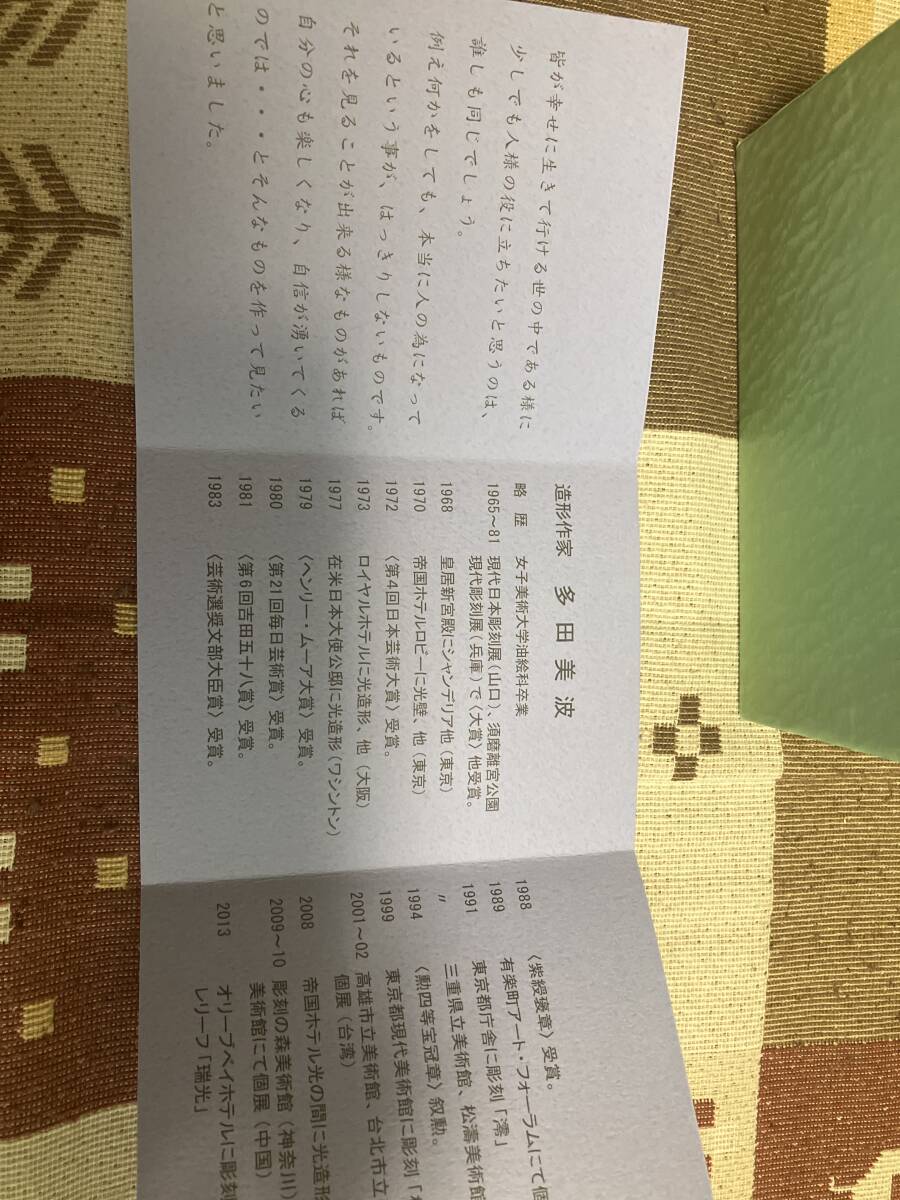 皆が幸せに生きて行ける世の中である様に
少しでも人様の役に立ちたいと思うのは、
誰しも同じでしょう。
例え何かをしても、本当に人の為になって
いるという事が、はっきりしないものです。
それを見ることが出来る様なものがあれば
自分の心も楽しくなり、自信が湧いてくる
のでは・・・とそんなものを作って見たい
と思いました。
造形作家 多田美波
略歴 女子美術大学油絵科卒業
1965～81 現代日本彫刻展(山口)、須磨離宮公園
現代彫刻展(兵庫)で〈大賞〉他受賞。
1968 皇居新宮殿にシャンデリア他(東京)
1970 帝国ホテルロビーに光壁、他(東京)
1972 〈第4回日本芸術大賞〉受賞。
1973 ロイヤルホテルに光造形、他(大阪)
1977 在米日本大使公邸に光造形(ワシントン)
1979 〈ヘンリー・ムーア大賞〉受賞。
1980 〈第21回毎日芸術賞〉受賞。
1981 〈第6回吉田五十八賞〉受賞。
1983 〈芸術選奨文部大臣賞〉受賞。
1988 〈紫綬褒章〉受賞。
1989 有楽町アート・フォーラムにて個
1991 東京都庁舎に彫刻「澪」
〃 三重県立美術館、松濤美術館
1994 〈勲四等宝冠章〉叙勲。
1999 東京都現代美術館に彫刻「
2001～02 高雄市立美術館、台北市立
個展(台湾)
2008 帝国ホテル光の間に光造形
2009～10 彫刻の森美術館(神奈川)
美術館にて個展(中国)
2013 オリーブベイホテルに彫刻
レリーフ「瑞光」